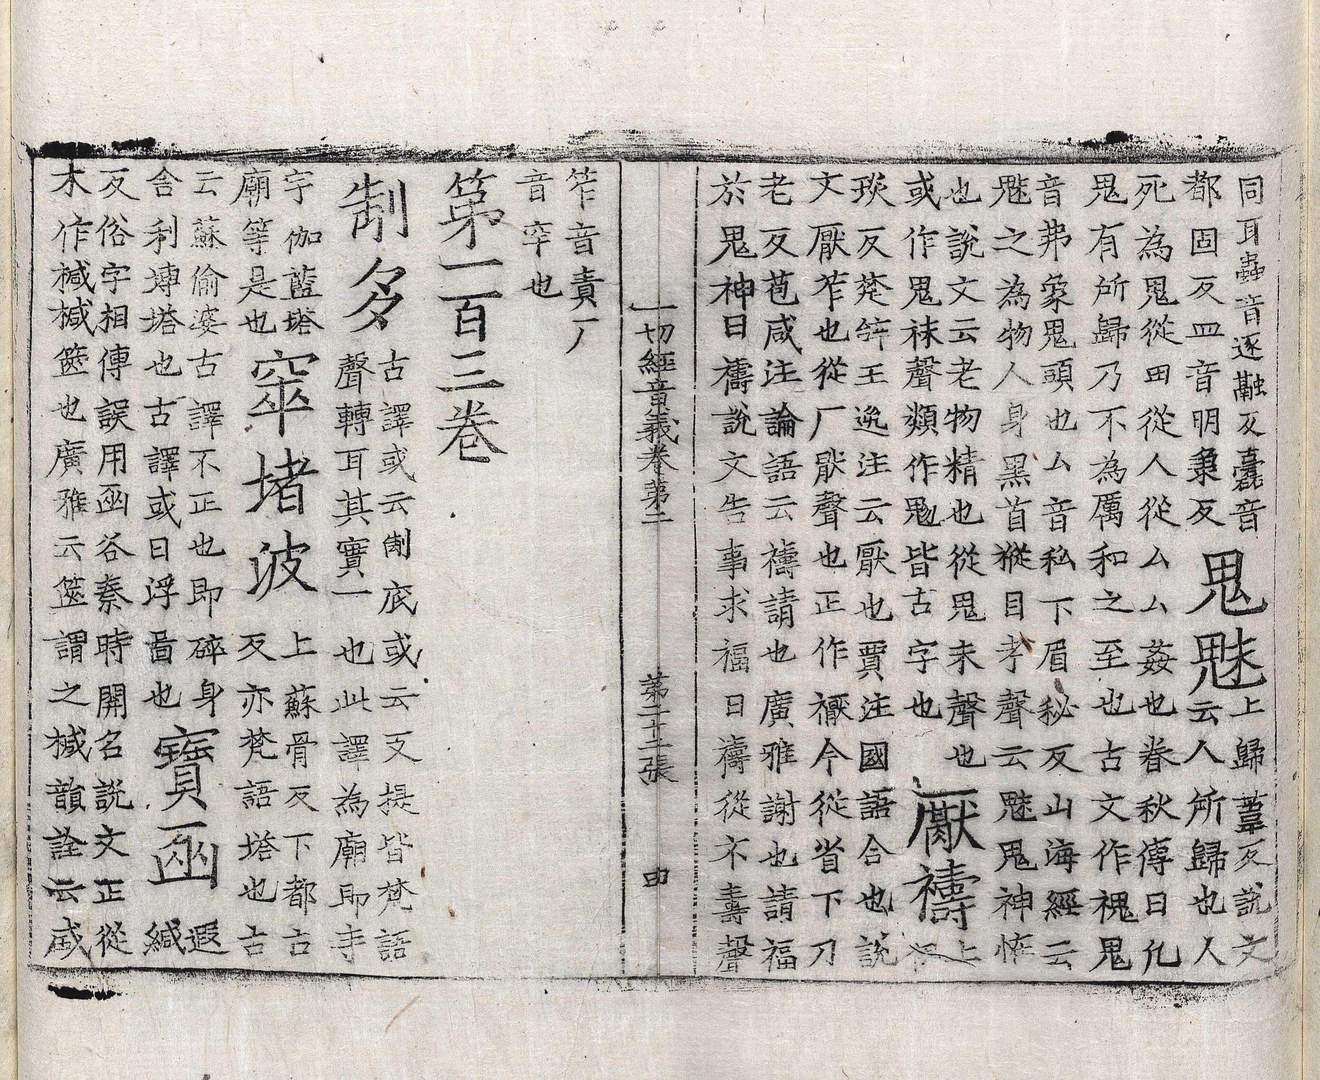 同耳蠱音逐融反蠹音
都固反皿音明秉反
鬼魅
上歸葦反說文
云人所歸也人
死為鬼從田從人從厶厶姦也春秋傳曰凡
鬼有所歸乃不為厲和之至也古文作䰠鬼
音弗象鬼頭也厶音私下眉秘反山海經云
魅之為物人身黑首從目孝聲云魅鬼神怪
也說文云老物精也從鬼未聲也
或作鬼袜聲類作鬽皆古字也
厭禱
上
琰反楚辝王逸注云厭也賈注國語合也說
文厭笮也從厂猒聲也正作禰今從省下刀
老反苞咸注論語云禱請也廣雅謝也請福
於鬼神曰禱說文告事求福曰禱從示壽聲
一切經音義卷第二
第二十二張
申
笮音責厂
音罕也
第一百三卷
制多
古譯或云制底或云支提皆梵語
聲轉耳其實一也此譯為廟即寺
宇伽藍塔
廟等是也
窣堵波
上蘇骨反下都古
反亦梵語塔也古
云蘇偷婆古譯不正也即碎身
舍利塼塔也古譯或曰浮啚也
寶函
遐
緘
反俗字相傳誤用函谷秦時關名說文正從
木作椷椷篋也廣雅云篋謂之椷韻詮云咸